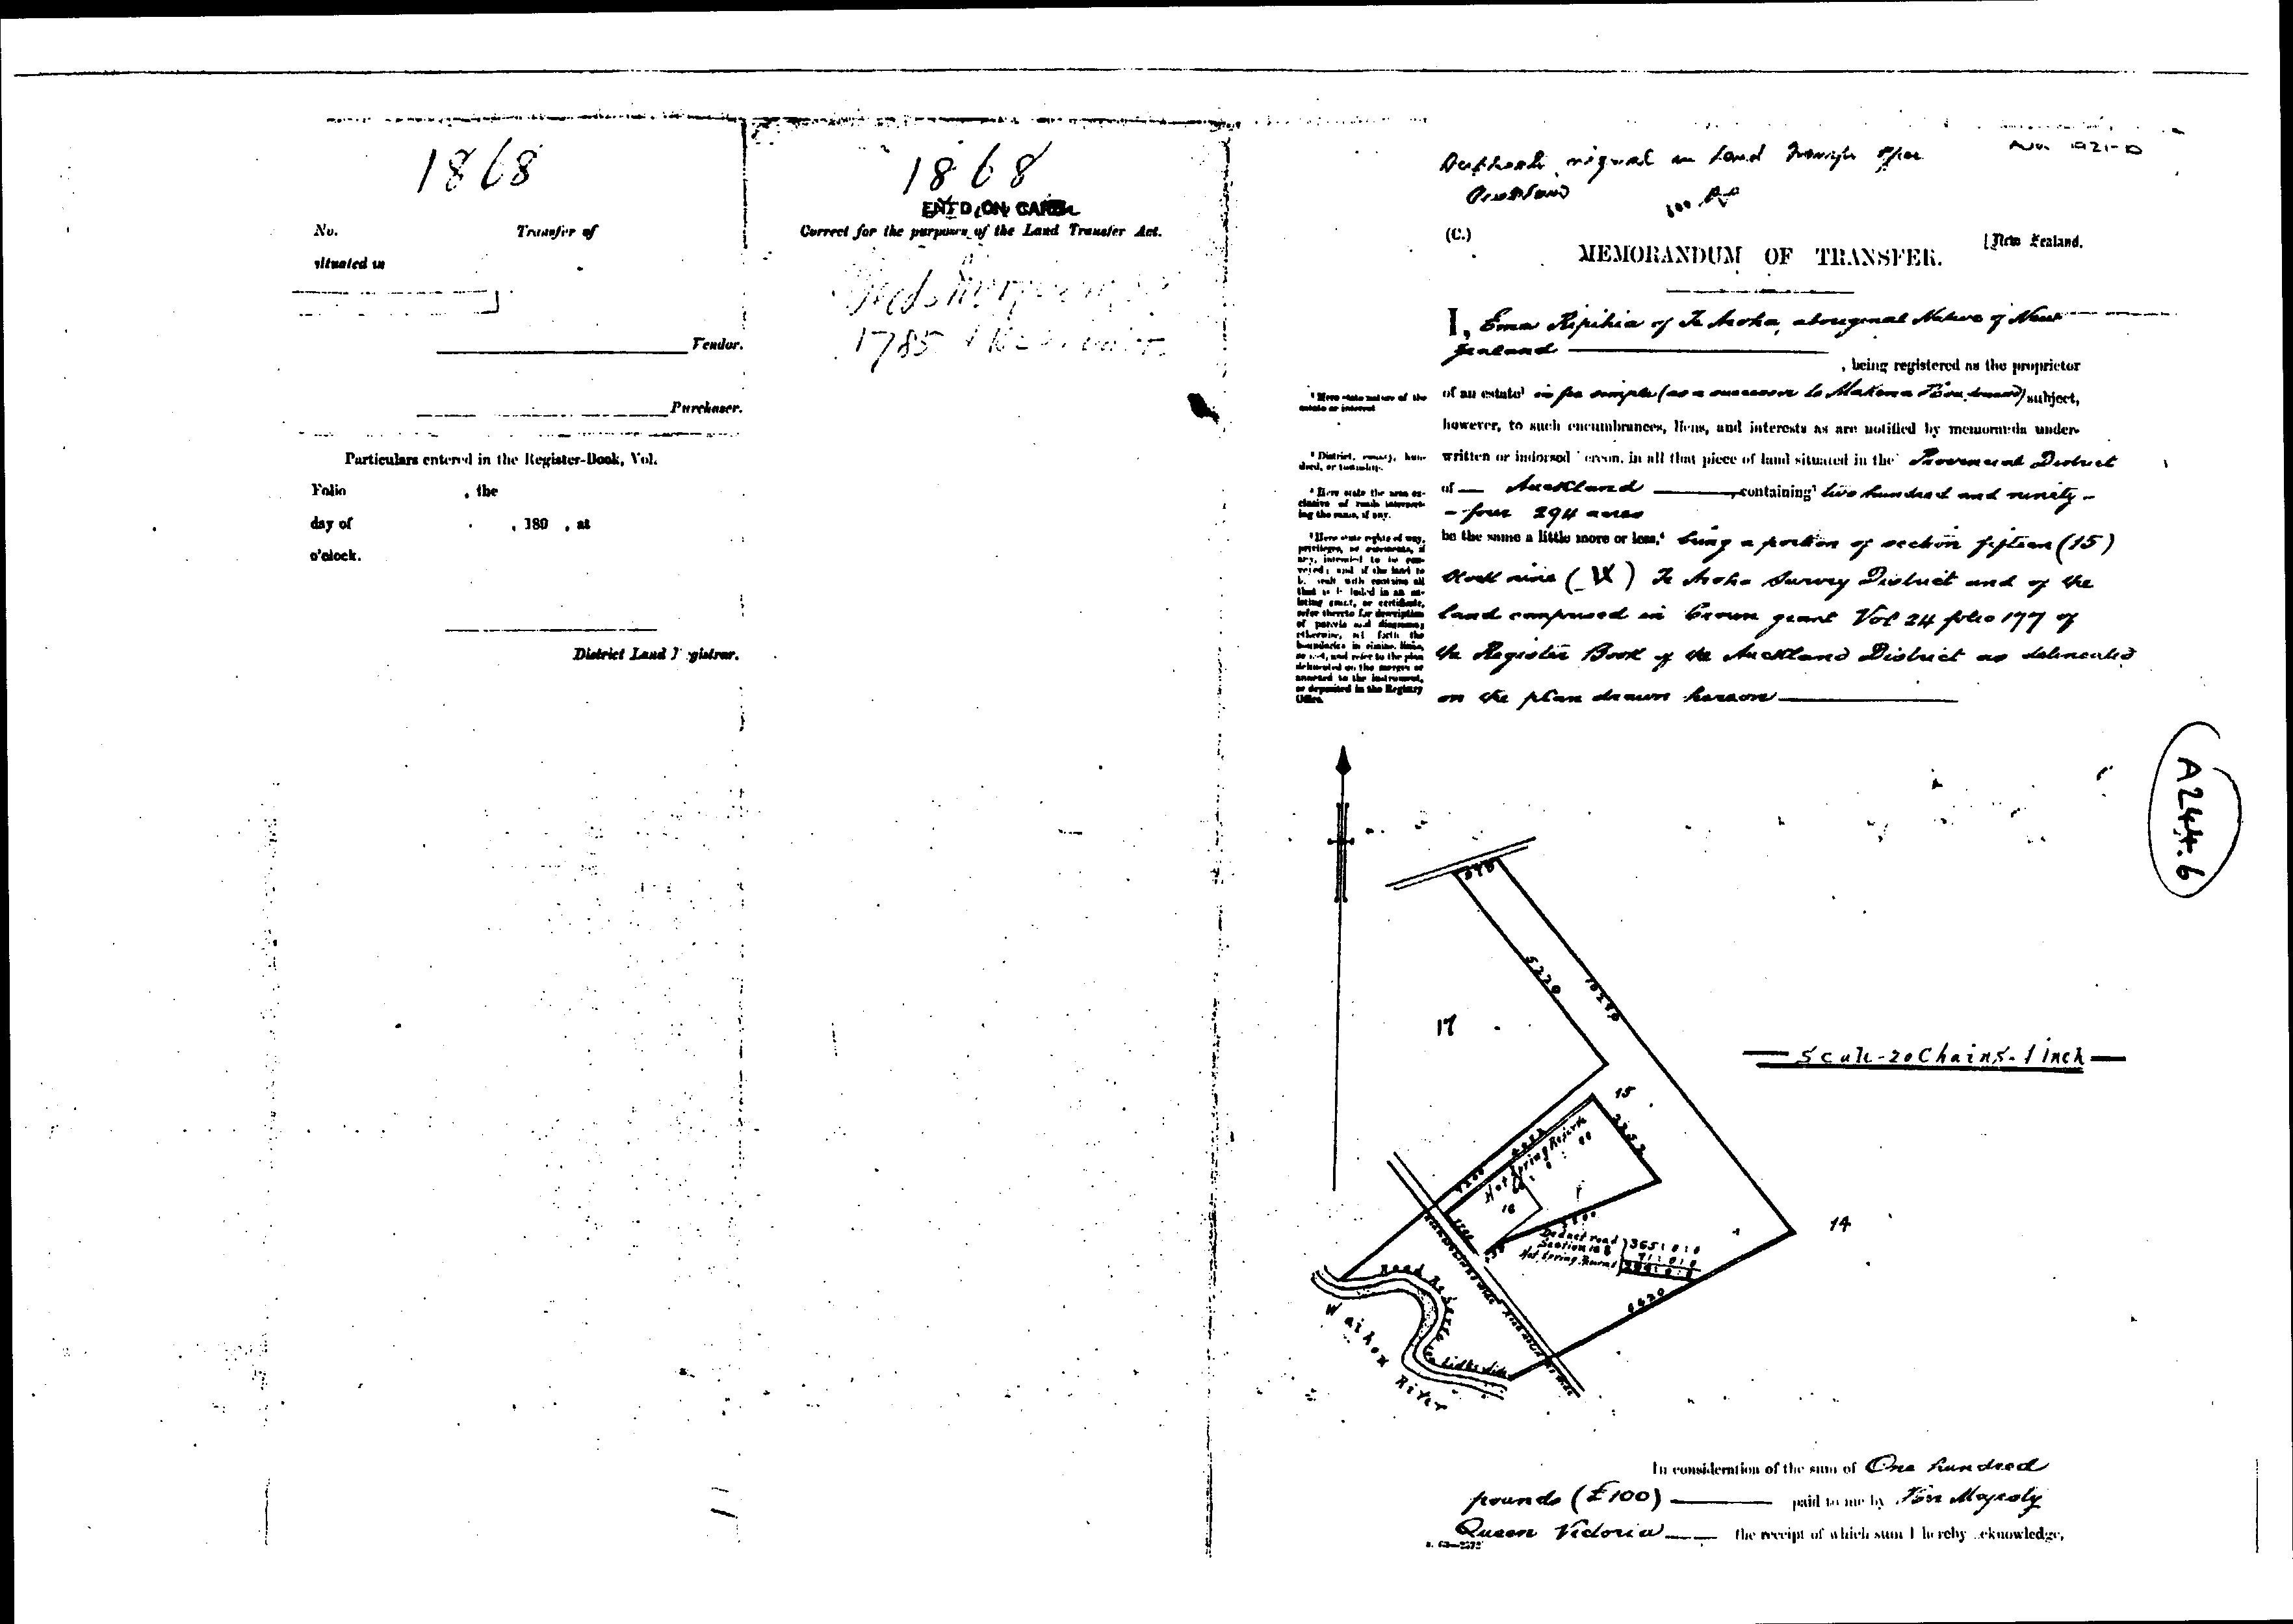 1868
No. Transfer of
situated in
Vendor.
Purchaser.
Particulars entered in the Register-Book, Vol.
Folio , the
day of , 180 , at
o'clock.
District Land Registrar.
1868
ENTD ON CARD
Correct for the purposes of the Land Transfer Act.
1785
in Land Transfer
Auckland
(C.)
[New Zealand.
MEMORANDUM OF TRANSFER.
I, Ema Ripikia of Te Aroha, aboriginal Native of New
Zealand
, being registered as the proprietor
¹ Here state nature of the
estate or interest
of an estate¹ in fee simple (as a successor to Makena deceased) subject,
however, to such encumbrances, liens, and interests as are notified by memoranda under-
² District, county, hun-
dred, or township.
written or indorsed ereon, in all that piece of land situated in the Provincial District
³ Here state the area ex-
clusive of roads intersect-
ing the same, if any.
of Auckland , containing³ two hundred and ninety -
- four 294 acres
⁴ Here state rights of way,
privileges, or easements, if
any, intended to be con-
veyed; and if the land to
be dealt with contains all
that is included in an ex-
isting grant, or certificate,
refer thereto for description
of parcels and diagrams;
otherwise, set forth the
boundaries in chains, links,
or feet, and refer to the plan
delineated on the margin or
annexed to the instrument,
or deposited in the Registry
Office.
be the same a little more or less,⁴ being a portion of section fifteen (15)
Block nine (IX) Te Aroha Survey District and of the
land comprised in Crown grant Vol 24 folio 177 of
the Register Book of the Auckland District as delineated
on the plan drawn hereon
A244.6
5220
17
Scale-20 Chains-1 inch
15
Hot Spring Reserve
16
14
Deduct road 365:0:0
Section 16 & 71:0:0
Hot Spring Reserve 294:0:0
6620
Road Reserve
Waihou River
In consideration of the sum of One hundred
pounds (£100) paid to me by Her Majesty
Queen Victoria the receipt of which sum I hereby acknowledge,